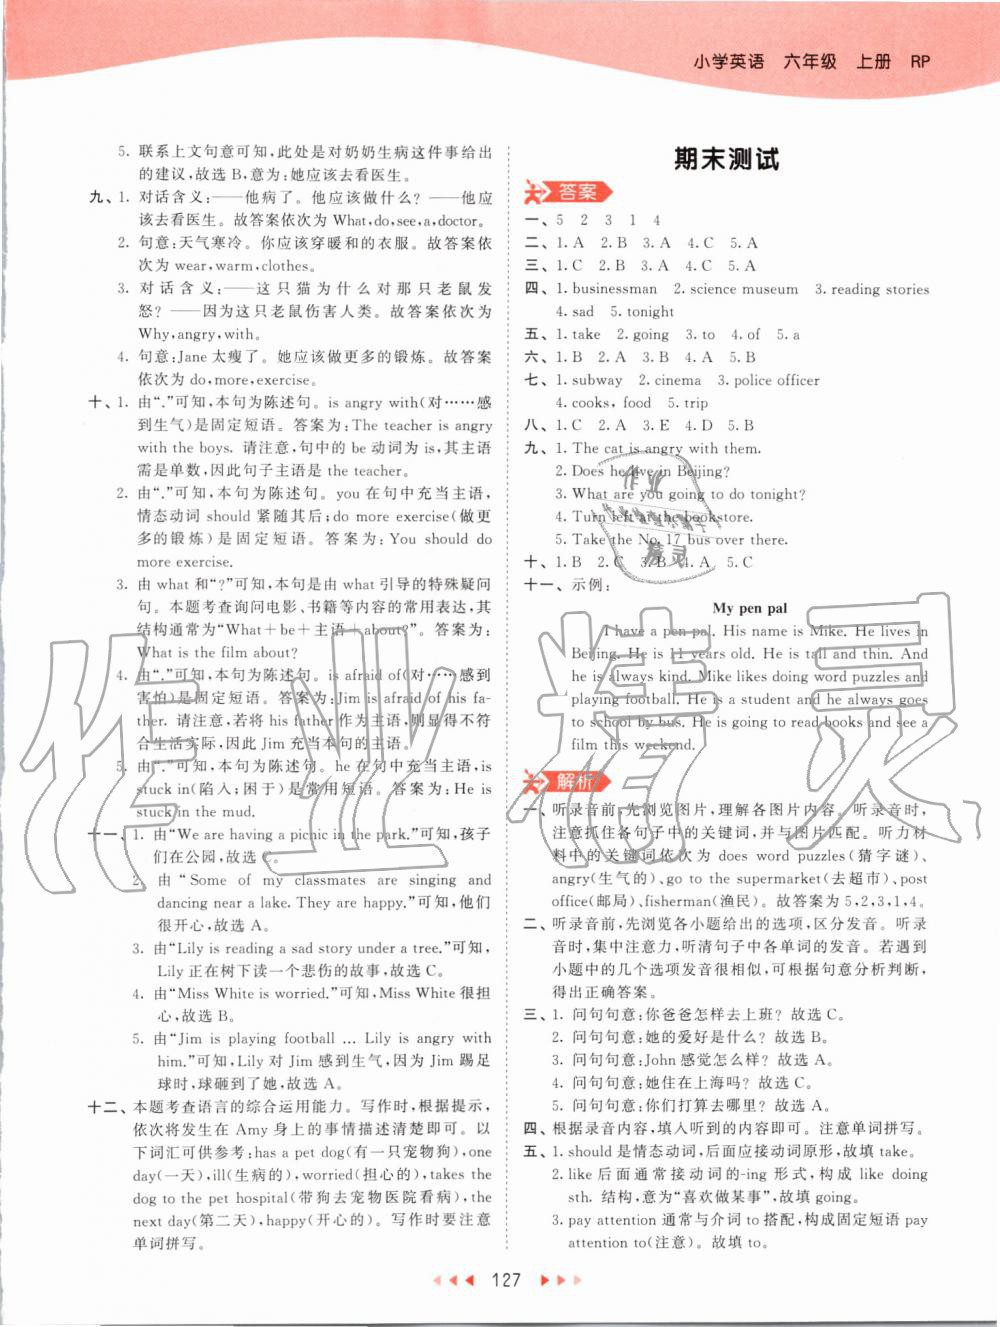 小学英语 六年级 上册 RP
5. 联系上文句意可知,此处是对奶奶生病这件事给出
的建议,故选 B,意为:她应该去看医生。
九、1. 对话含义:——他病了。他应该做什么? ——他应
该去看医生。故答案依次为 What,do,see,a,doctor。
2. 句意:天气寒冷。你应该穿暖和的衣服。故答案依
次为 wear,warm,clothes。
3. 对话含义:——这只猫为什么对那只老鼠发
怒? ——因为这只老鼠伤害人类。故答案依次为
Why,angry,with。
4. 句意:Jane 太瘦了。她应该做更多的锻炼。故答案
依次为 do,more,exercise。
十、1. 由“.”可知,本句为陈述句。is angry with(对……感
到生气)是固定短语。答案为:The teacher is angry
with the boys. 请注意,句中的 be 动词为 is,其主语
需是单数,因此句子主语是 the teacher。
2. 由“.”可知,本句为陈述句。you 在句中充当主语,
情态动词 should 紧随其后;do more exercise(做更
多的锻炼)是固定短语。答案为:You should do
more exercise.
3. 由 what 和“?”可知,本句是由 what 引导的特殊疑问
句。本题考查询问电影、书籍等内容的常用表达,其
结构通常为“What+be+主语+about?”。答案为:
What is the film about?
4. 由“.”可知,本句为陈述句。is afraid of(对……感到
害怕)是固定短语。答案为:Jim is afraid of his fa-
ther. 请注意,若将 his father 作为主语,则显得不符
合生活实际,因此 Jim 充当本句的主语。
5. 由“.”可知,本句为陈述句。he 在句中充当主语,is
stuck in(陷入;困于)是常用短语。答案为:He is
stuck in the mud.
十一、1. 由“We are having a picnic in the park.”可知,孩子
们在公园,故选 C。
2. 由“Some of my classmates are singing and
dancing near a lake. They are happy.”可知,他们
很开心,故选 A。
3. 由“Lily is reading a sad story under a tree.”可知,
Lily 正在树下读一个悲伤的故事,故选 C。
4. 由“Miss White is worried.”可知,Miss White 很担
心,故选 B。
5. 由“Jim is playing football ... Lily is angry with
him.”可知,Lily 对 Jim 感到生气,因为 Jim 踢足
球时,球砸到了她,故选 A。
十二、本题考查语言的综合运用能力。写作时,根据提示,
依次将发生在 Amy 身上的事情描述清楚即可。以
下词汇可供参考:has a pet dog(有一只宠物狗),one
day(一天),ill(生病的),worried(担心的),takes the
dog to the pet hospital(带狗去宠物医院看病),the
next day(第二天),happy(开心的)。写作时要注意
单词拼写。
期末测试
答案
一、5 2 3 1 4
二、1. A 2. B 3. A 4. C 5. A
三、1. C 2. B 3. A 4. C 5. A
四、1. businessman 2. science museum 3. reading stories
4. sad 5. tonight
五、1. take 2. going 3. to 4. of 5. a
六、1. B 2. A 3. B 4. A 5. B
七、1. subway 2. cinema 3. police officer
4. cooks, food 5. trip
八、1. C 2. A 3. E 4. D 5. B
九、1. The cat is angry with them.
2. Does he live in Beijing?
3. What are you going to do tonight?
4. Turn left at the bookstore.
5. Take the No. 17 bus over there.
十、1. B 2. C 3. B 4. A 5. C
十一、示例:
My pen pal
I have a pen pal. His name is Mike. He lives in
Beijing. He is 11 years old. He is tall and thin. And
he is always kind. Mike likes doing word puzzles and
playing football. He is a student and he always goes
to school by bus. He is going to read books and see a
film this weekend.
解析
一、听录音前,先浏览图片,理解各图片内容。听录音时,
注意抓住各句子中的关键词,并与图片匹配。听力材
料中的关键词依次为 does word puzzles(猜字谜)、
angry(生气的)、go to the supermarket(去超市)、post
office(邮局)、fisherman(渔民)。故答案为 5,2,3,1,4。
二、听录音前,先浏览各小题给出的选项,区分发音。听录
音时,集中注意力,听清句子中各单词的发音。若遇到
小题中的几个选项发音很相似,可根据句意分析判断,
得出正确答案。
三、1. 问句句意:你爸爸怎样去上班? 故选 C。
2. 问句句意:她的爱好是什么? 故选 B。
3. 问句句意:John 感觉怎么样? 故选 A。
4. 问句句意:她住在上海吗? 故选 C。
5. 问句句意:你们打算去哪里? 故选 A。
四、根据录音内容,填入听到的内容即可。注意单词拼写。
五、1. should 是情态动词,后面应接动词原形,故填 take。
2. like 后面通常接动词的-ing 形式,构成 like doing
sth. 结构,意为“喜欢做某事”,故填 going。
3. pay attention 通常与介词 to 搭配,构成固定短语 pay
attention to(注意)。故填 to。
127
作业精灵